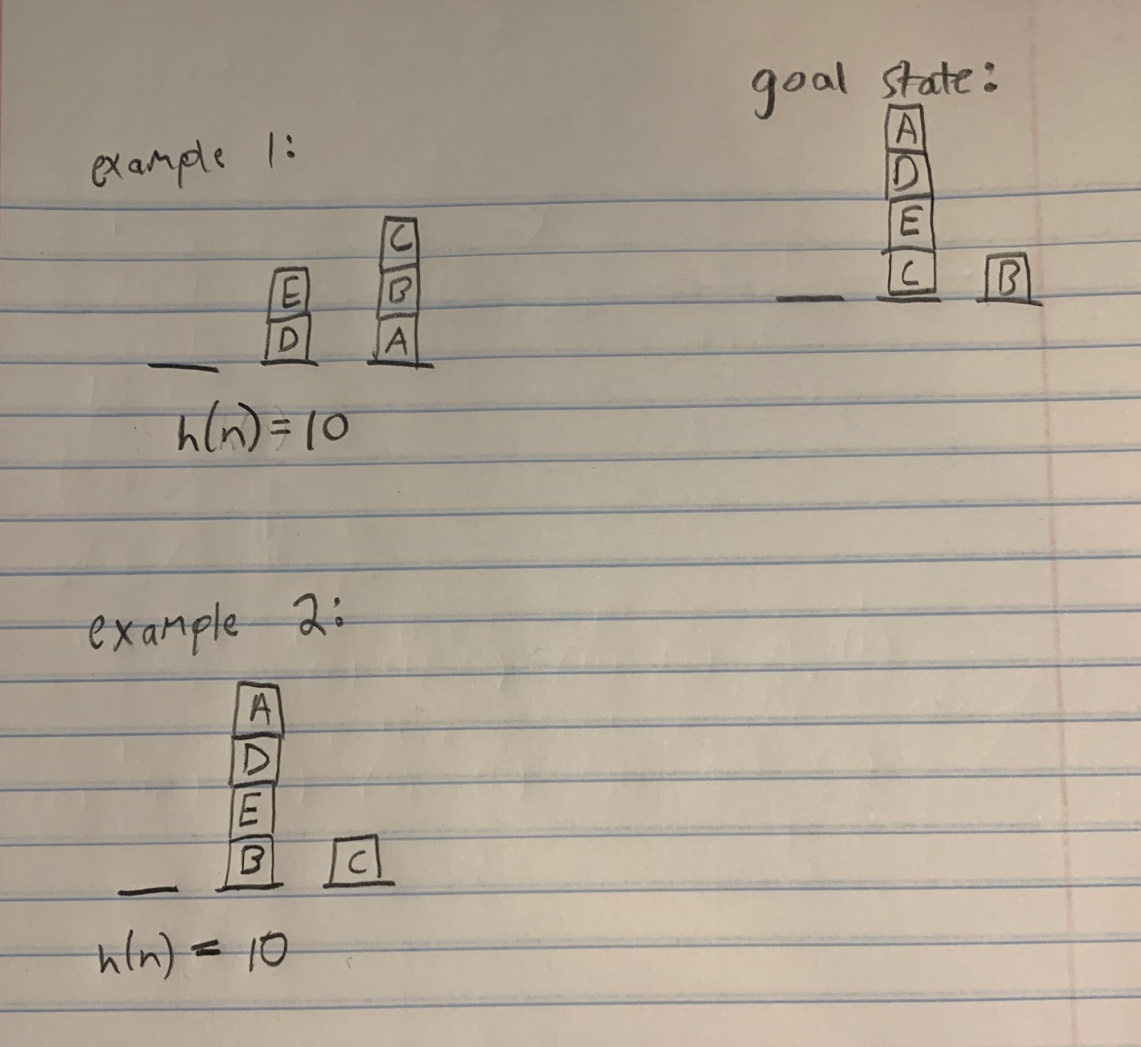 goal state:
A
D
E
C B
example 1:
C
E B
D A
h(n)=10
example 2:
A
D
E
B C
h(n) = 10